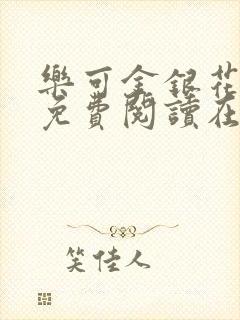 樂可金銀花
免費閱讀在
笑佳人